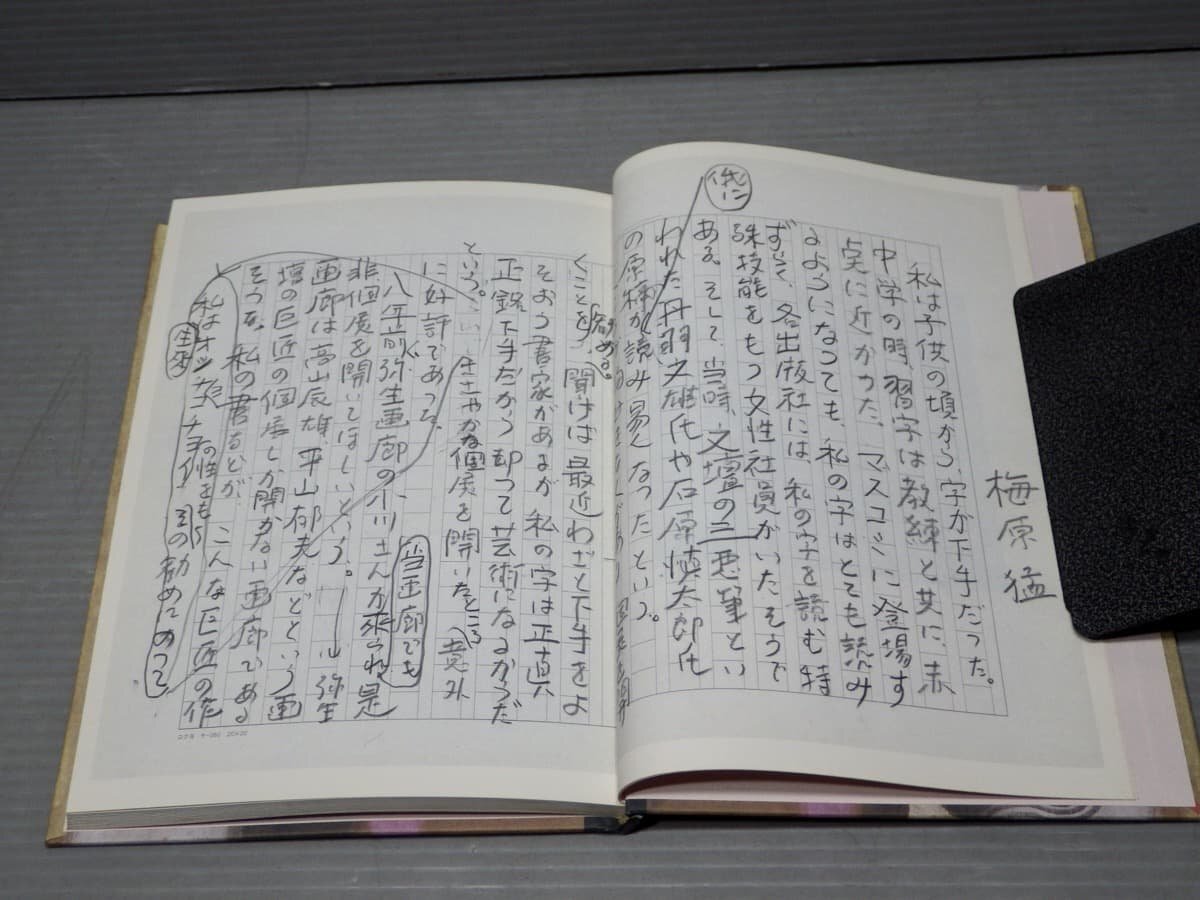 梅原猛
私は子供の頃から、字が下手だった。
中学の時、習字は教練と共に、赤
点に近かった。マスコミに登場す
るようになっても、私の字はとても読み
ずらく、各出版社には、私の字を読む特
殊技能をもつ女性社員がいたそうで
ある。そして、当時、文壇の三悪筆とい
われた丹羽文雄氏や石原慎太郎氏
の原稿が読み易くなったという。
くことを
聞けば最近わざと下手をよ
そおう書家があるが私の字は正真
正銘下手だから却って芸術になるからだ
という。
ささやかな個展を開いたところ、意外
に好評であった。
八年前弥生画廊の小川さんが来られ是
非個展を開いてほしいという。
当画廊でも
弥生
画廊は高山辰雄、平山郁夫などという画
壇の巨匠の個展しか開かない画廊である
そうな。私の書などが、こんな巨匠の作
私は
生来
オッチョコチョイ
の性をもち
の勧めにのって、